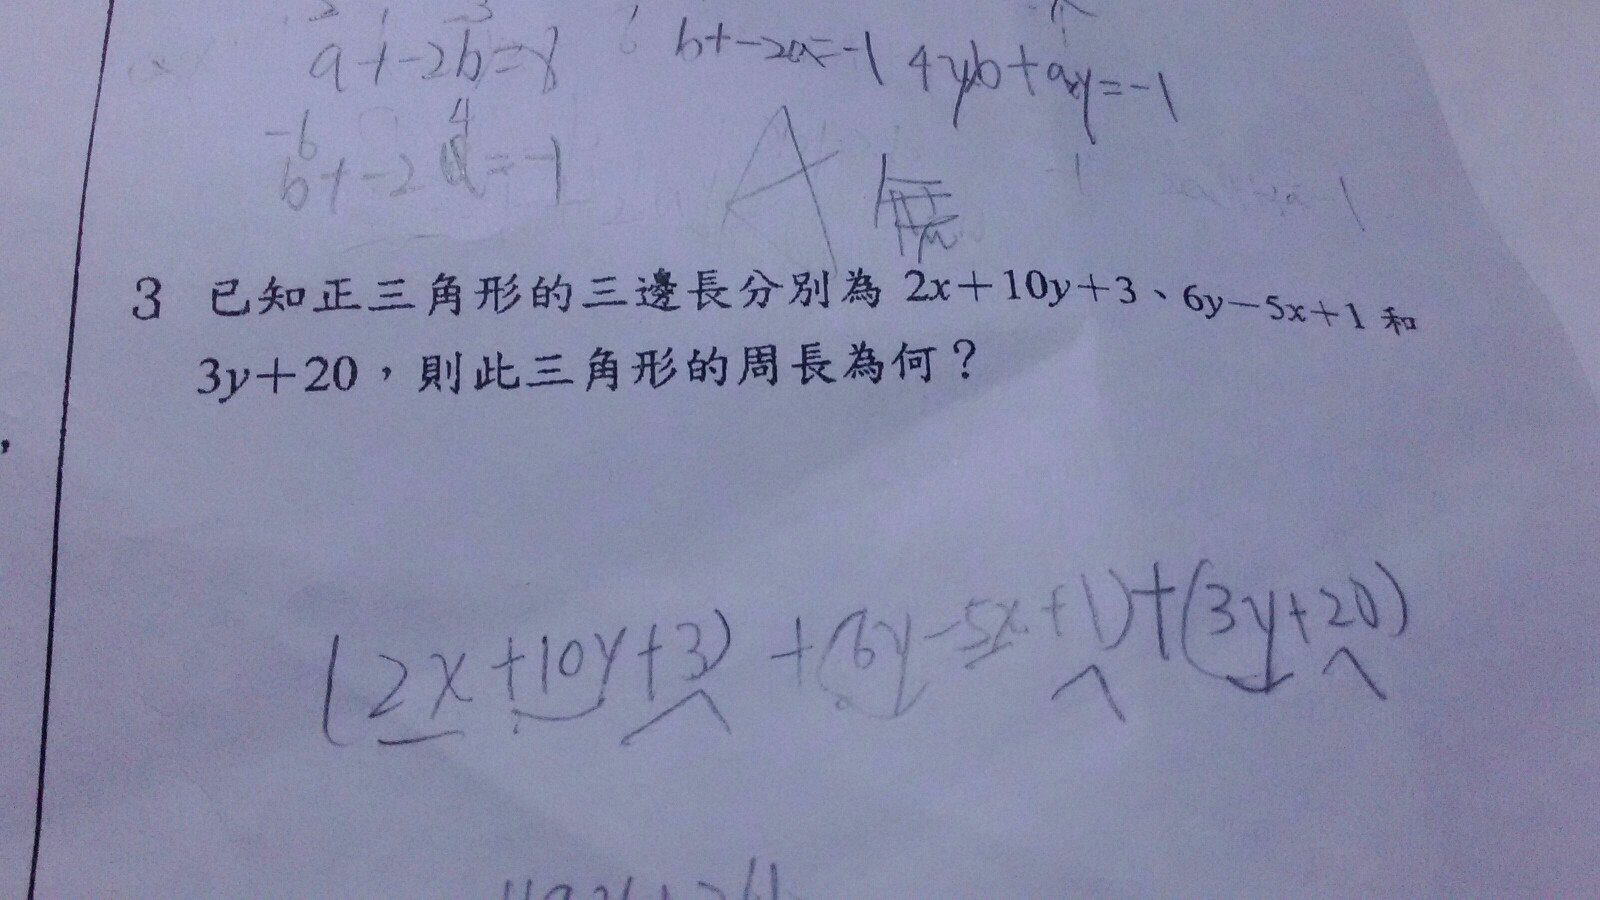 a+-2b=8
b+-2a=-1
4yb+axy=-1
-6 4
b+-2a=-1
A 無
3 已知正三角形的三邊長分別為 2x+10y+3、6y-5x+1 和
3y+20,則此三角形的周長為何?
,
(2x+10y+3)+(6y-5x+1)+(3y+20)